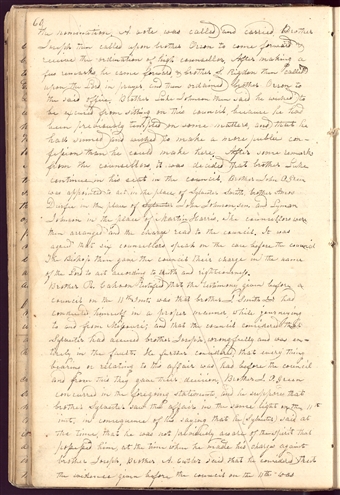 60
the nomination, A vote was called and carried, Brother
Joseph then called upon brother Orson to come forward &
receive the ordination of high counsellor. After making a
few remarks he came forward & brother S. Rigdon then called
upon the Lord in prayer and then ordained brother Orson to
the said office, Brother Luke Johnson then said he wished to
be excused from sitting on this council because he had
been previously tempted on some matters, and that he
had sinned and wished to make a more public con-
fession than he could make here, After some remarks
from the counsellors, it was decided that brother Luke
continue in his seat in the council, Brother John P. Green
was appointed to act in the place of Sylvester Smith, brother Amos
Durfee in the place of John Johnson, sen and Lyman
Johnson in the place of Martin Harris. The councillors were
then arranged and the charge read to the council. It was
agreed that six counsellors speak on the case before the council
The Bishop then gave the council their charge in the name
of the Lord to act according to truth and righteousness.
Brother R. Cahoon testified that the testimony given before a
council on the 11th Inst. was that brother J. Smith Jr had
conducted himself in a proper manner while journeying
to and from Missouri; and that the council considered that
Sylvester had accused brother Joseph, wrongfully and was en-
tirely in the fault. He further considered that every thing
bearing or relating to the affair was had before the council
and from this they gave their decision, Brother J. P. Green
concurred in the foregoing statements, and he supposed that
brother Sylvester saw the affairs in the same light on the 11th
inst; in consequence of his saying that he (Sylvester) said at
the time, that he was not previously aware of the spirit that
possessed him, at the time when he made his charge against
brother Joseph, Brother A. Cutler said that he considered that
the evidence given before the council on the 11th was